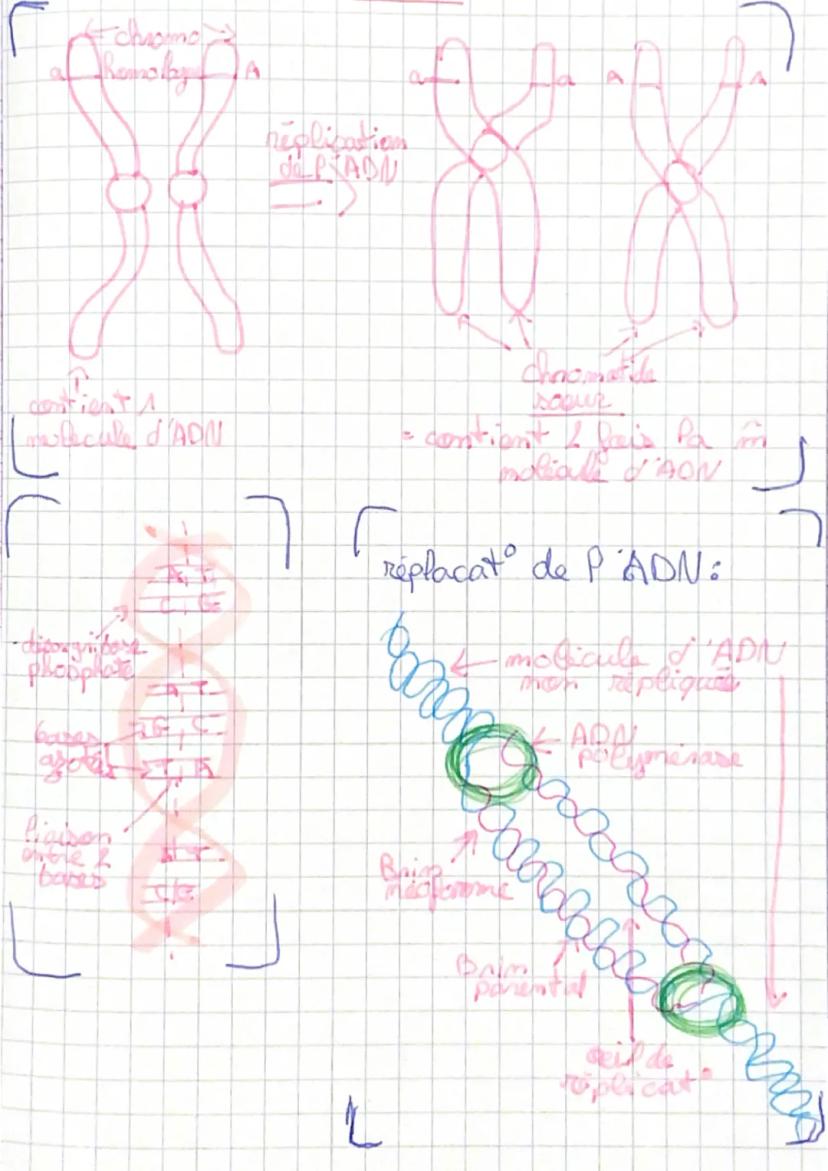 chromo
a homologue A
réplication
de l'ADN
a a A A
contient 1
molécule d'ADN
chromatide
soeur
= contient 2 fois la m̂
molécule d'ADN
A T
C G
phosphate
A T
G C
T A
bases
azotées
liaison
entre 2
bases
C G
réplacat° de l'ADN :
molécule d'ADN
non répliquée
ADN
polymérase
Brin
néoformé
Brin
parental
oeil de
réplicat°